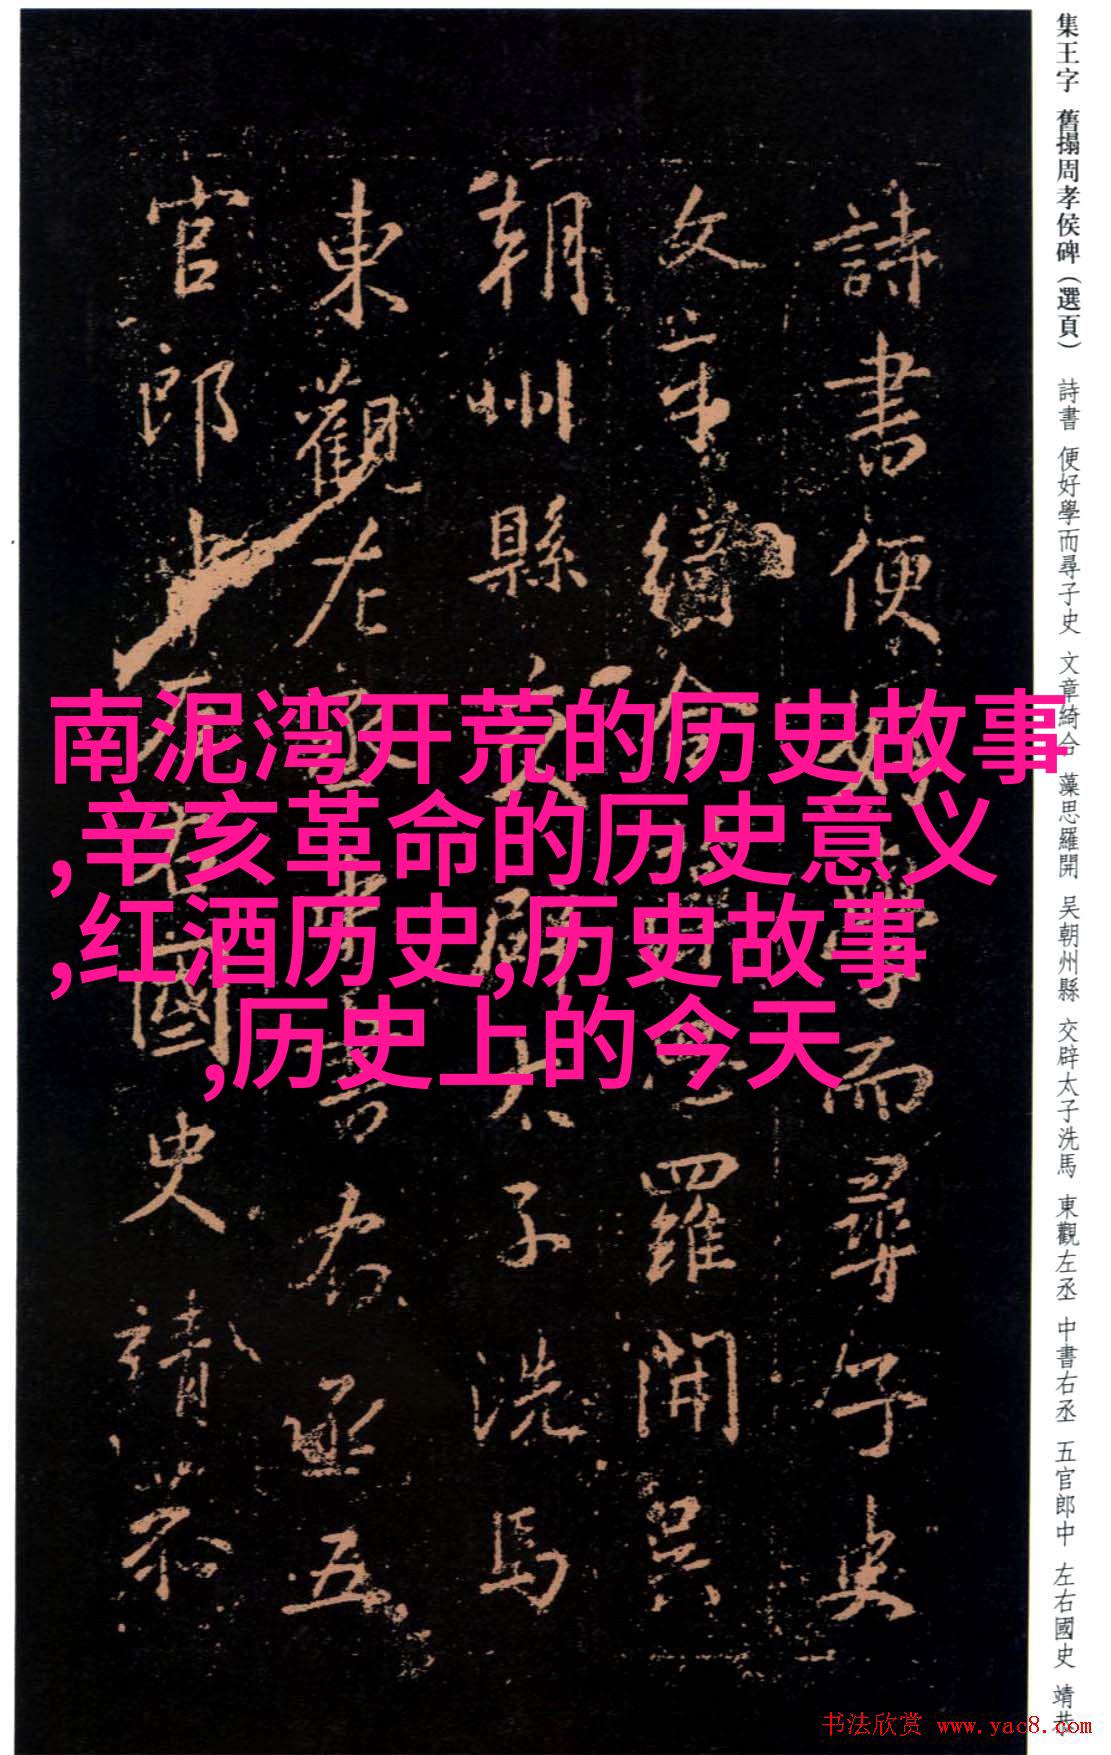 集王字 舊搨周孝侯碑（選頁） 詩書 便好學而尋子史 文章綺合 藻思羅開 吴朝州縣 交辟太子洗馬 東觀左丞 中書右丞 五官郎中 左右國史 靖恭
詩書便好學而尋子史
文章綺合羅開吴
朝州縣交辟太子洗馬
東觀左丞中書右丞五
官郎中左右國史靖恭
南泥湾开荒的历史故事
,辛亥革命的历史意义
,红酒历史,历史故事
,历史上的今天
书法欣赏 www.yac8.com